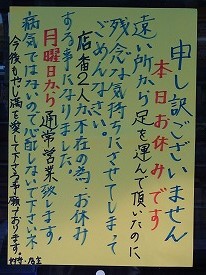 申し訳ございません
本日お休みです
遠い所から足を運んで頂いたのに、
残念な気持ちにさせてしまって
ごめんなさい。
店番2人が不在の為、お休み
する事になりました。
月曜日から通常営業致します。
病気ではないので心配しないで下さいネ
今後も小満を愛して下さる事願っております。